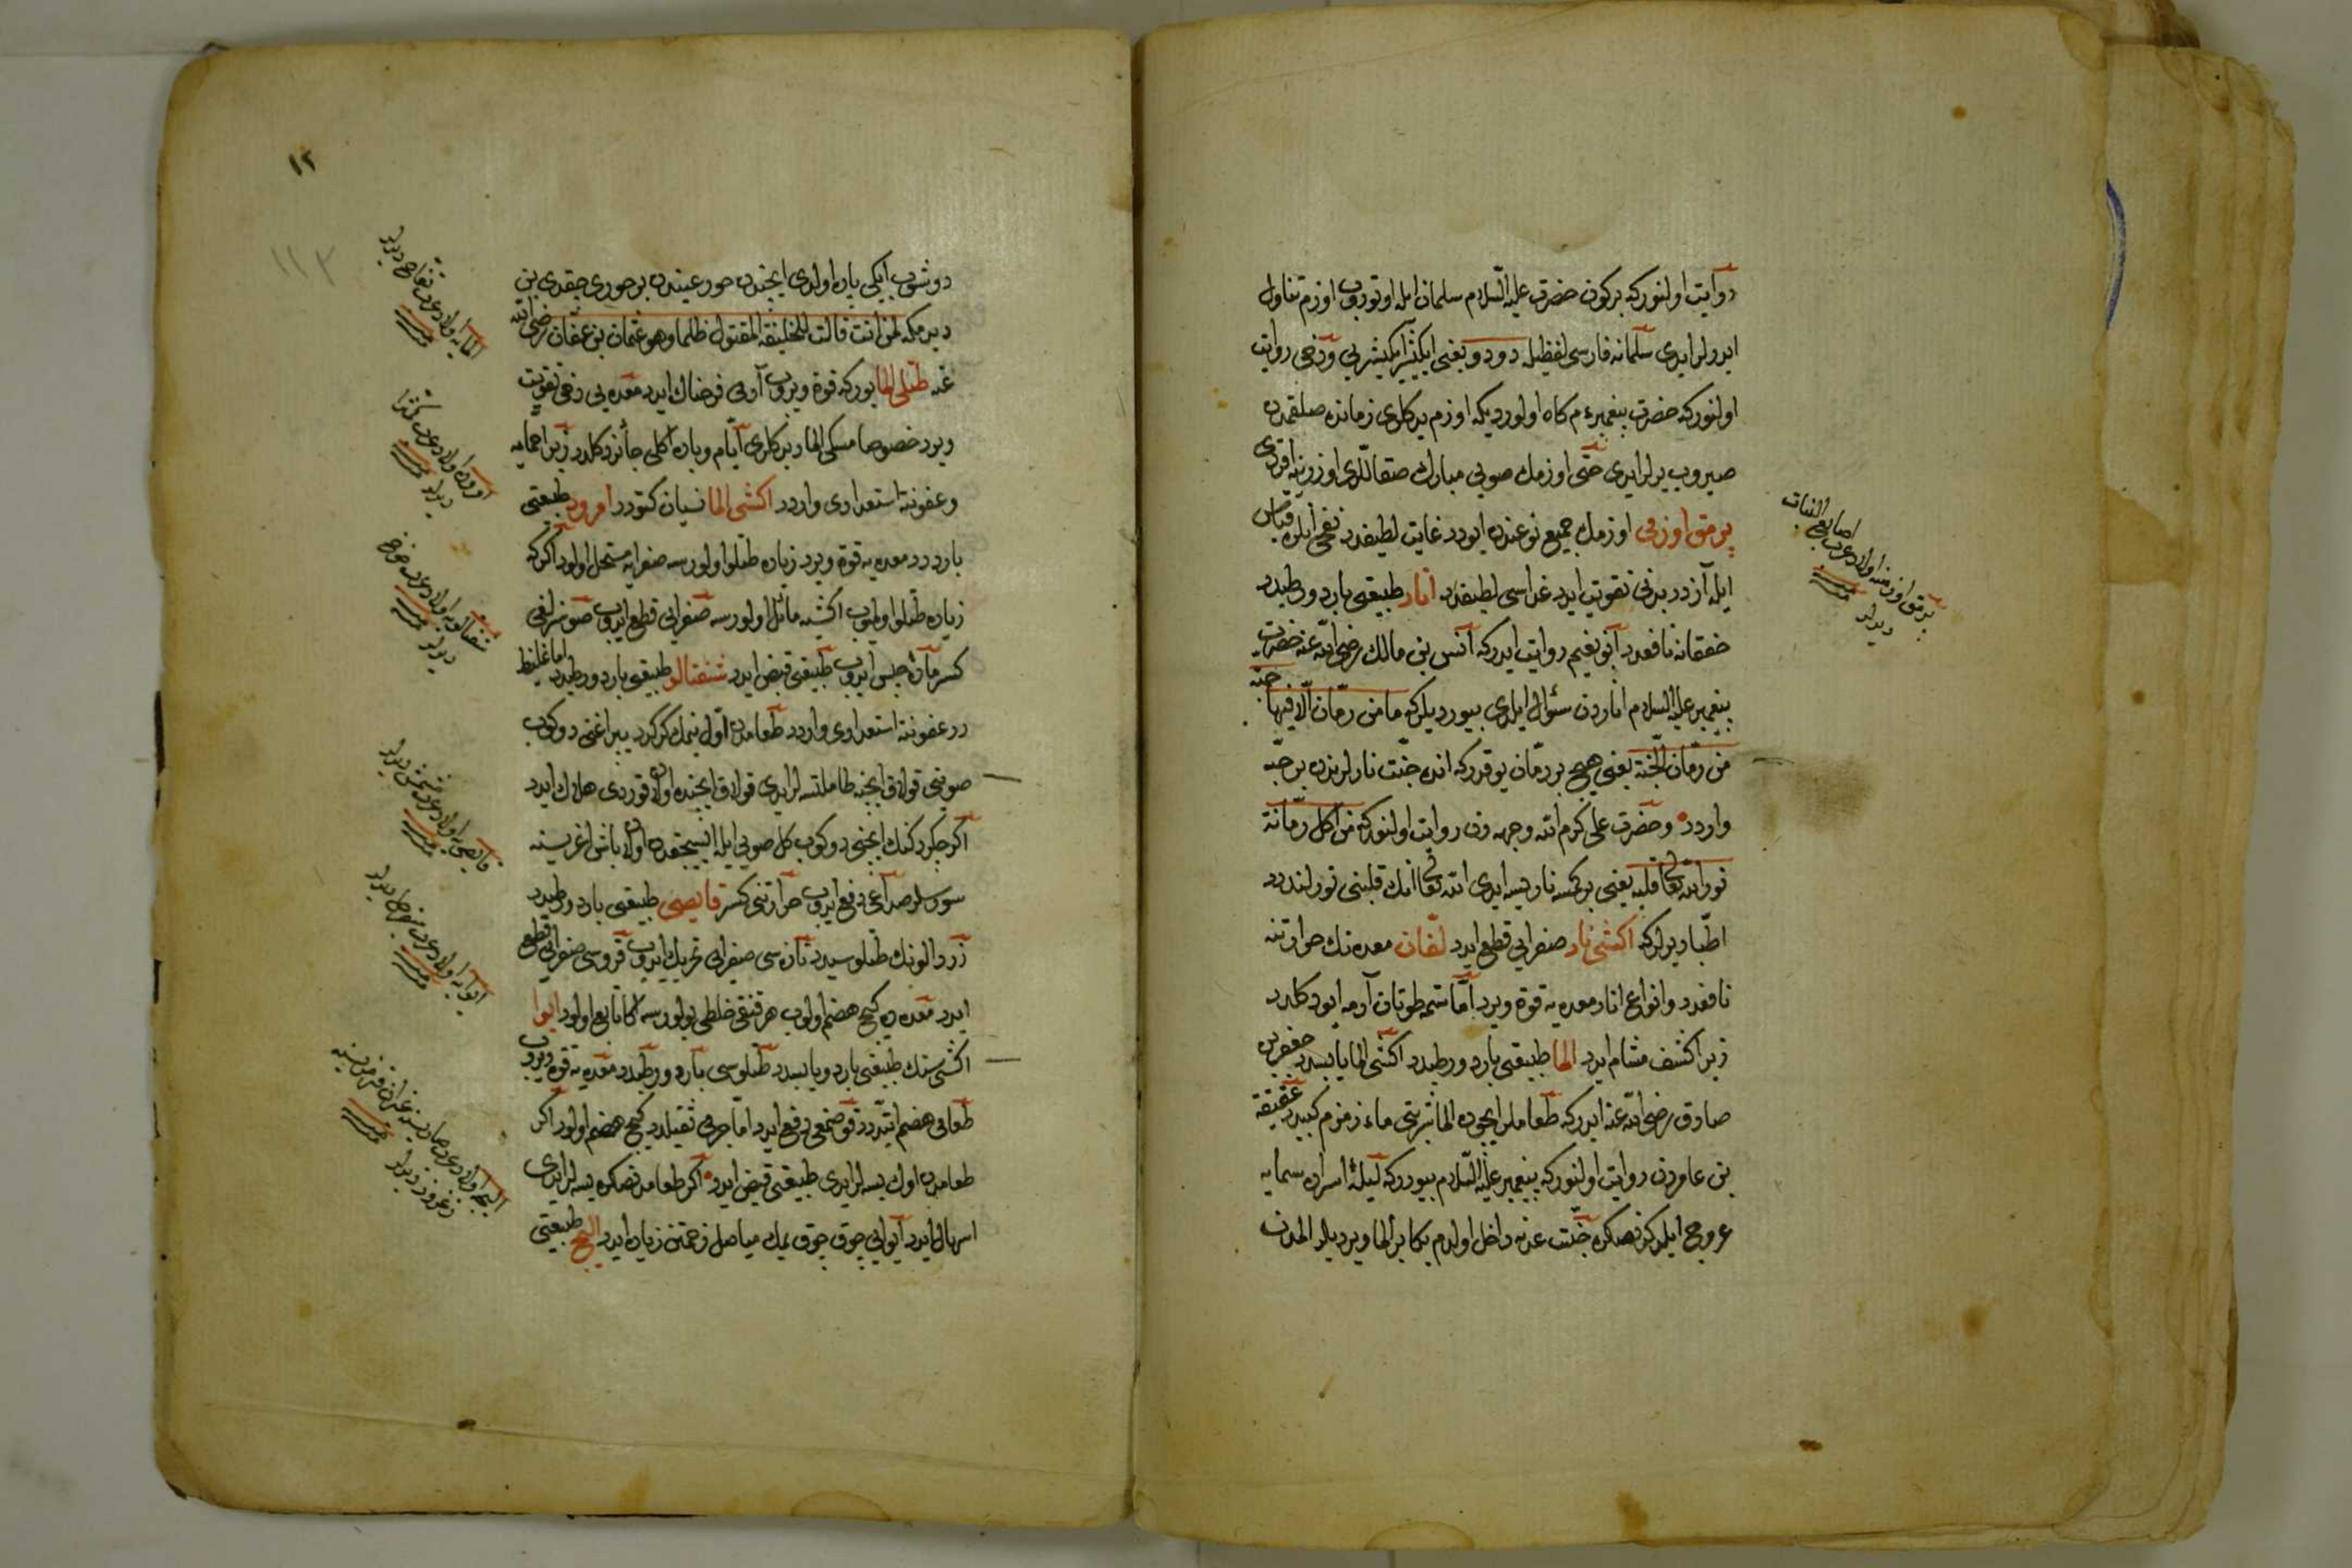 روایت اولنور که بر کون حضرت علیه السلام سلمان ایله اوتوروب اوزم تناول
ایدرلر ایدی سلمانه فارسی لفظیله دو دو یعنی ایکیشر ایکیشر یی ودخی روایت
اولنور که حضرت پیغمبر عم کاه اولوردیکه اوزم یدکلری زمانده صلقمدن
صیروب یرلر ایدی حتی اوزمك صویی مبارك صقاللری اوزرینه اقردی
پرمق اوزمی اوزمك جمیع نوعندن ایودر غایت لطیفدر نفعی ایله قیاس
ایله آزدر بدنی تقویت ایدر غداسی لطیفدر انار طبیعتی بارد ورطبدر
خفقانه نافعدر ابو نعیم روایت ایدر که انس بن مالك رضی الله عنه حضرت
پیغمبر علیه السلام اناردن سئوال ایلدی بیوردیلر که ما من رمان الا فیها حبة
من رمان الجنة یعنی هیچ بر رمان یوقدر که انده جنت نارلرندن بر حبه
واردر وحضرت علی کرم الله وجهه دن روایت اولنور که من اکل رمانة
نور الله تعالی قلبه یعنی بر کمسه نار یسه ایدی الله تعالی انك قلبنی نورلندرر
اطبا دیرلر که اکشی نار صفرایی قطع ایدر لفان معده نك حرارتنه
نافعدر وانواع انار معده یه قوة ویرر اما شمه طوتان آدمه ایو دکلدر
زیرا کشف مشام ایدر الما طبیعتی بارد ورطبدر اکشی الما یابسدر جعفر بن
صادق رضی الله عنه ایدر که طعاملر ایچوده الما شربتی ماء زمزم کبیدر عقیقه
بن عامردن روایت اولنور که پیغمبر علیه السلام بیوردر که لیلۀ اسراده سمایه
عروج ایلدکدنصکره جنت عدنه داخل اولدم بکا بر الما ویردیلر المدن
پرمق اوزمنه اولاد عرب اصابع البنات
دیرلر
١٢
١١٣
دوشوب ایکی پاره اولدی ایچندن حور عیندن بر حوری چقدی بن
دیرمکه لمن انت قالت للخلیفة المقتول ظلما وهو عثمان بن عفان رضی الله
عنه طتلی الما یورکه قوة ویروب آدمی فرحناك ایدر معده یی دخی تقویت
ویرر خصوصا مسکی الما ویر کلری ایام وباده اکلی جائز دکلدر زیرا حمایه
وعفونته استعدادی واردر اکشی الما نسیان کتورر امرود طبیعتی
بارددر معده یه قوة ویرر زیاده طتلو اولورسه صفرایه مستحیل اولور اکر که
زیاده طتلو اولمیوب اکشیه مائل اولورسه صفرایی قطع ایدوب صوسزلغی
کسر مادۀ حبس ایدوب طبیعتی قبض ایدر شفتالو طبیعتی بارد ورطبدر اما غلیظ
در عفونته استعدادی واردر طعامدن اول یمك کرکدر یپراغنی دوکوب
صوینی قولاق ایچنه طاملتسه لر ایدی قولاق ایچنده اولان قوردی هلاك ایدر
اکر چکردکنك ایچنی دوکوب کل صویی ایله ایسیجقدن اولان باش اغریسنه
سورسلر صداعی دفع ایدوب حرارتنی کسر قایصی طبیعتی بارد ورطبدر
زردالونك طتلوسیدر تازه سی صفرایی تحریك ایدوب قروسی صفرایی قطع
ایدر معده ده کیج هضم اولوب هر قنقی خلطی بولورسه اکا تابع اولور ایوا
اکشیسنك طبیعتی بارد ویابسدر طتلوسی بارد ورطبدر معده یه قوة ویروب
طعامی هضم ایتدرر قوصمغی دفع ایدر اما جرمی ثقیلدر کیج هضم اولور اکر
طعامدن اول یسه لر ایدی طبیعتی قبض ایدر اکر طعامدنصکره یسه لر ایدی
اسهال ایدر ایوایی چوق چوق یمك مفاصل زحمتن زیاده ایدر الیج طبیعتی
المایه اولاد عرب تفاح دیرلر
امروده اولاد عرب کمثرا
دیرلر
شفتالویه اولاد عرب خوخ
دیرلر
قایصی یه اولاد عرب مشمش دیرلر
ایوایه اولاد عرب سفرجل دیرلر
الیجه اولاد عرب
زعرور دیرلر